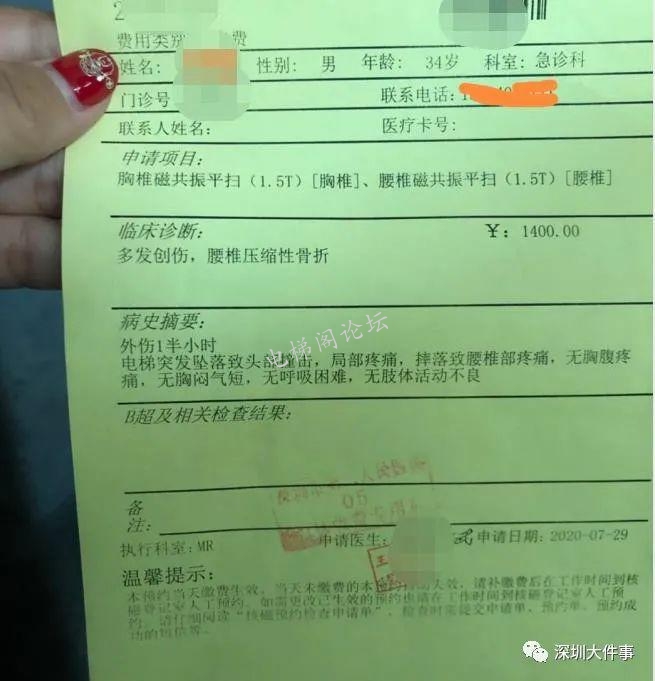 费用类别 费
姓名： 性别： 男 年龄： 34岁 科室：急诊科
门诊号 联系电话：
联系人姓名： 医疗卡号：
申请项目：
胸椎磁共振平扫（1.5T）[胸椎]、腰椎磁共振平扫（1.5T）[腰椎]
临床诊断： ￥：1400.00
多发创伤，腰椎压缩性骨折
病史摘要：
外伤1半小时
电梯突发坠落致头部撞击，局部疼痛，摔落致腰椎部疼痛，无胸腹疼
痛，无胸闷气短，无呼吸困难，无肢体活动不良
电梯阁论坛
B超及相关检查结果：
人民医院
05
备
注：
执行科室：MR 申请医生： 申请日期：2020-07-29
王
温馨提示：
本预约当天缴费生效，当天未缴费的本预约 失效，请补缴费后在工作时间到核
磁登记室人工预约。如需更改已生效的预约也请在工作时间到核磁登记室人工预
约。请仔细阅读“核磁预约检查申请单”，检查时需提交申请单、预约单、预约成
功的短信等。
深圳大件事